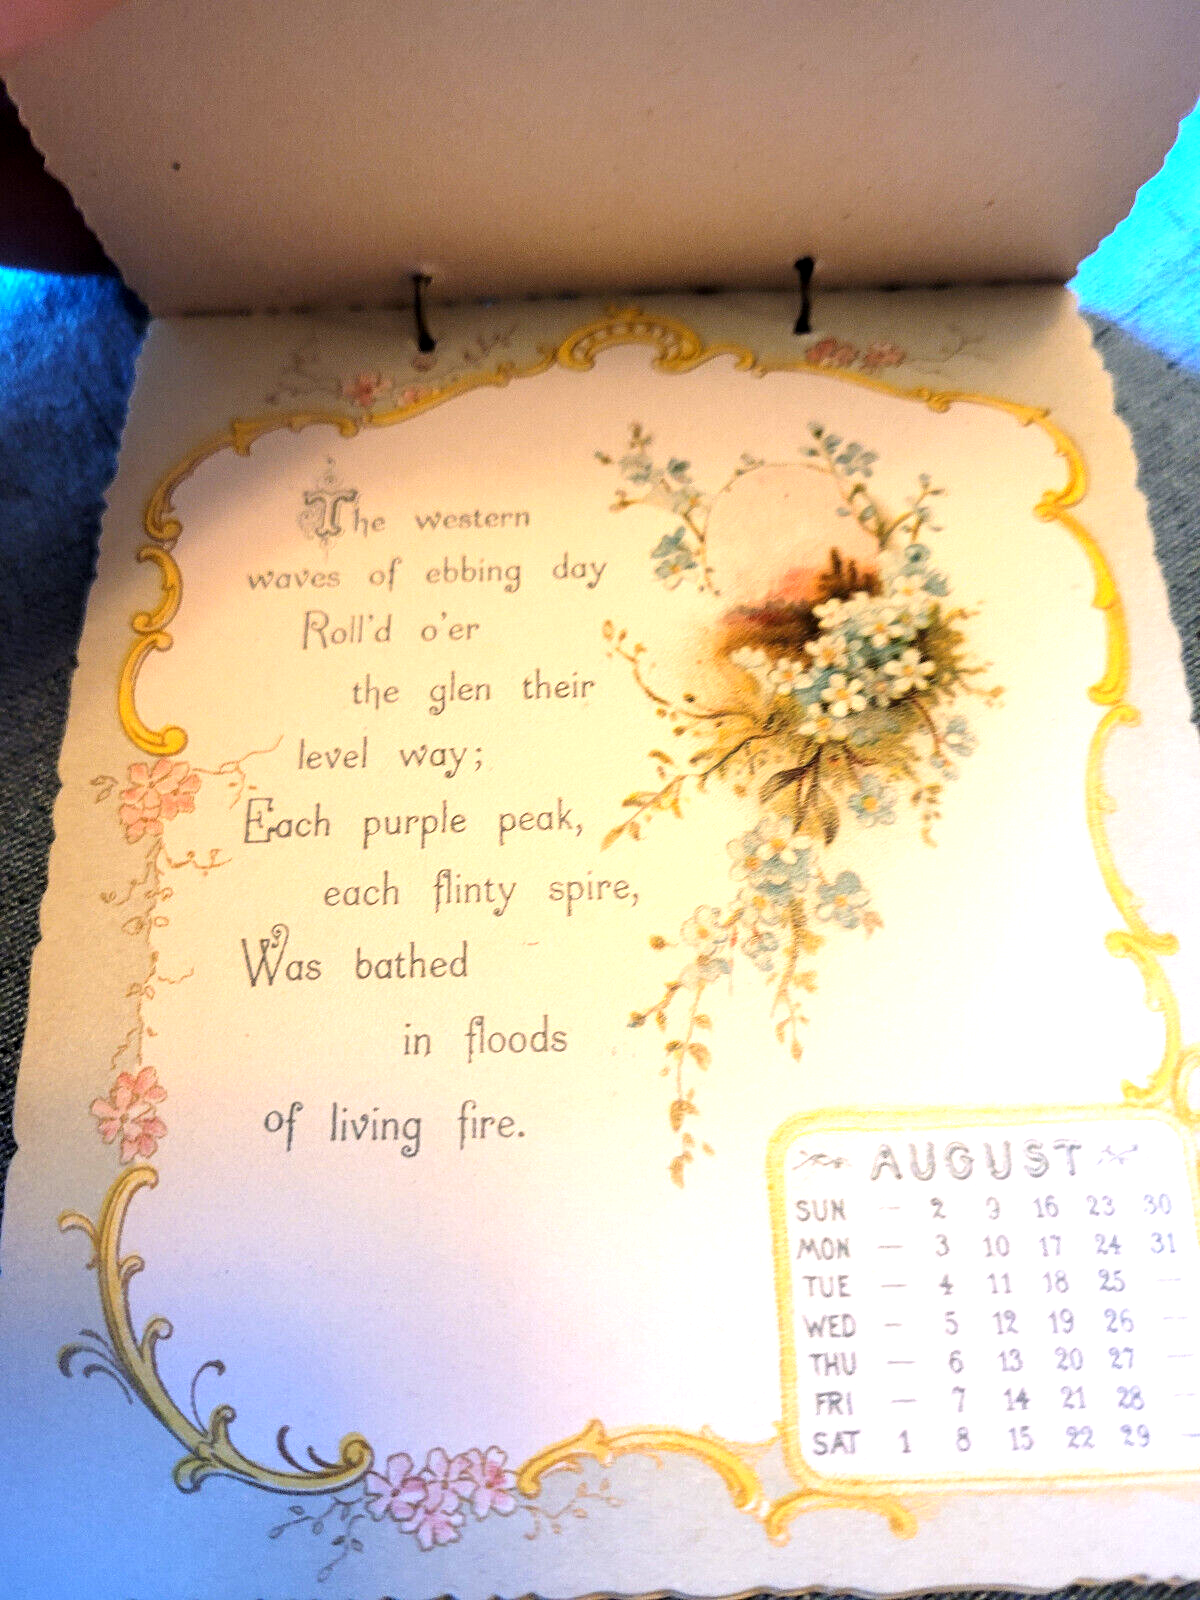 The western
waves of ebbing day
Roll'd o'er
the glen their
level way;
Each purple peak,
each flinty spire,
Was bathed
in floods
of living fire.
AUGUST
SUN — 2 9 16 23 30
MON — 3 10 17 24 31
TUE — 4 11 18 25 —
WED — 5 12 19 26 —
THU — 6 13 20 27 —
FRI — 7 14 21 28 —
SAT 1 8 15 22 29 —